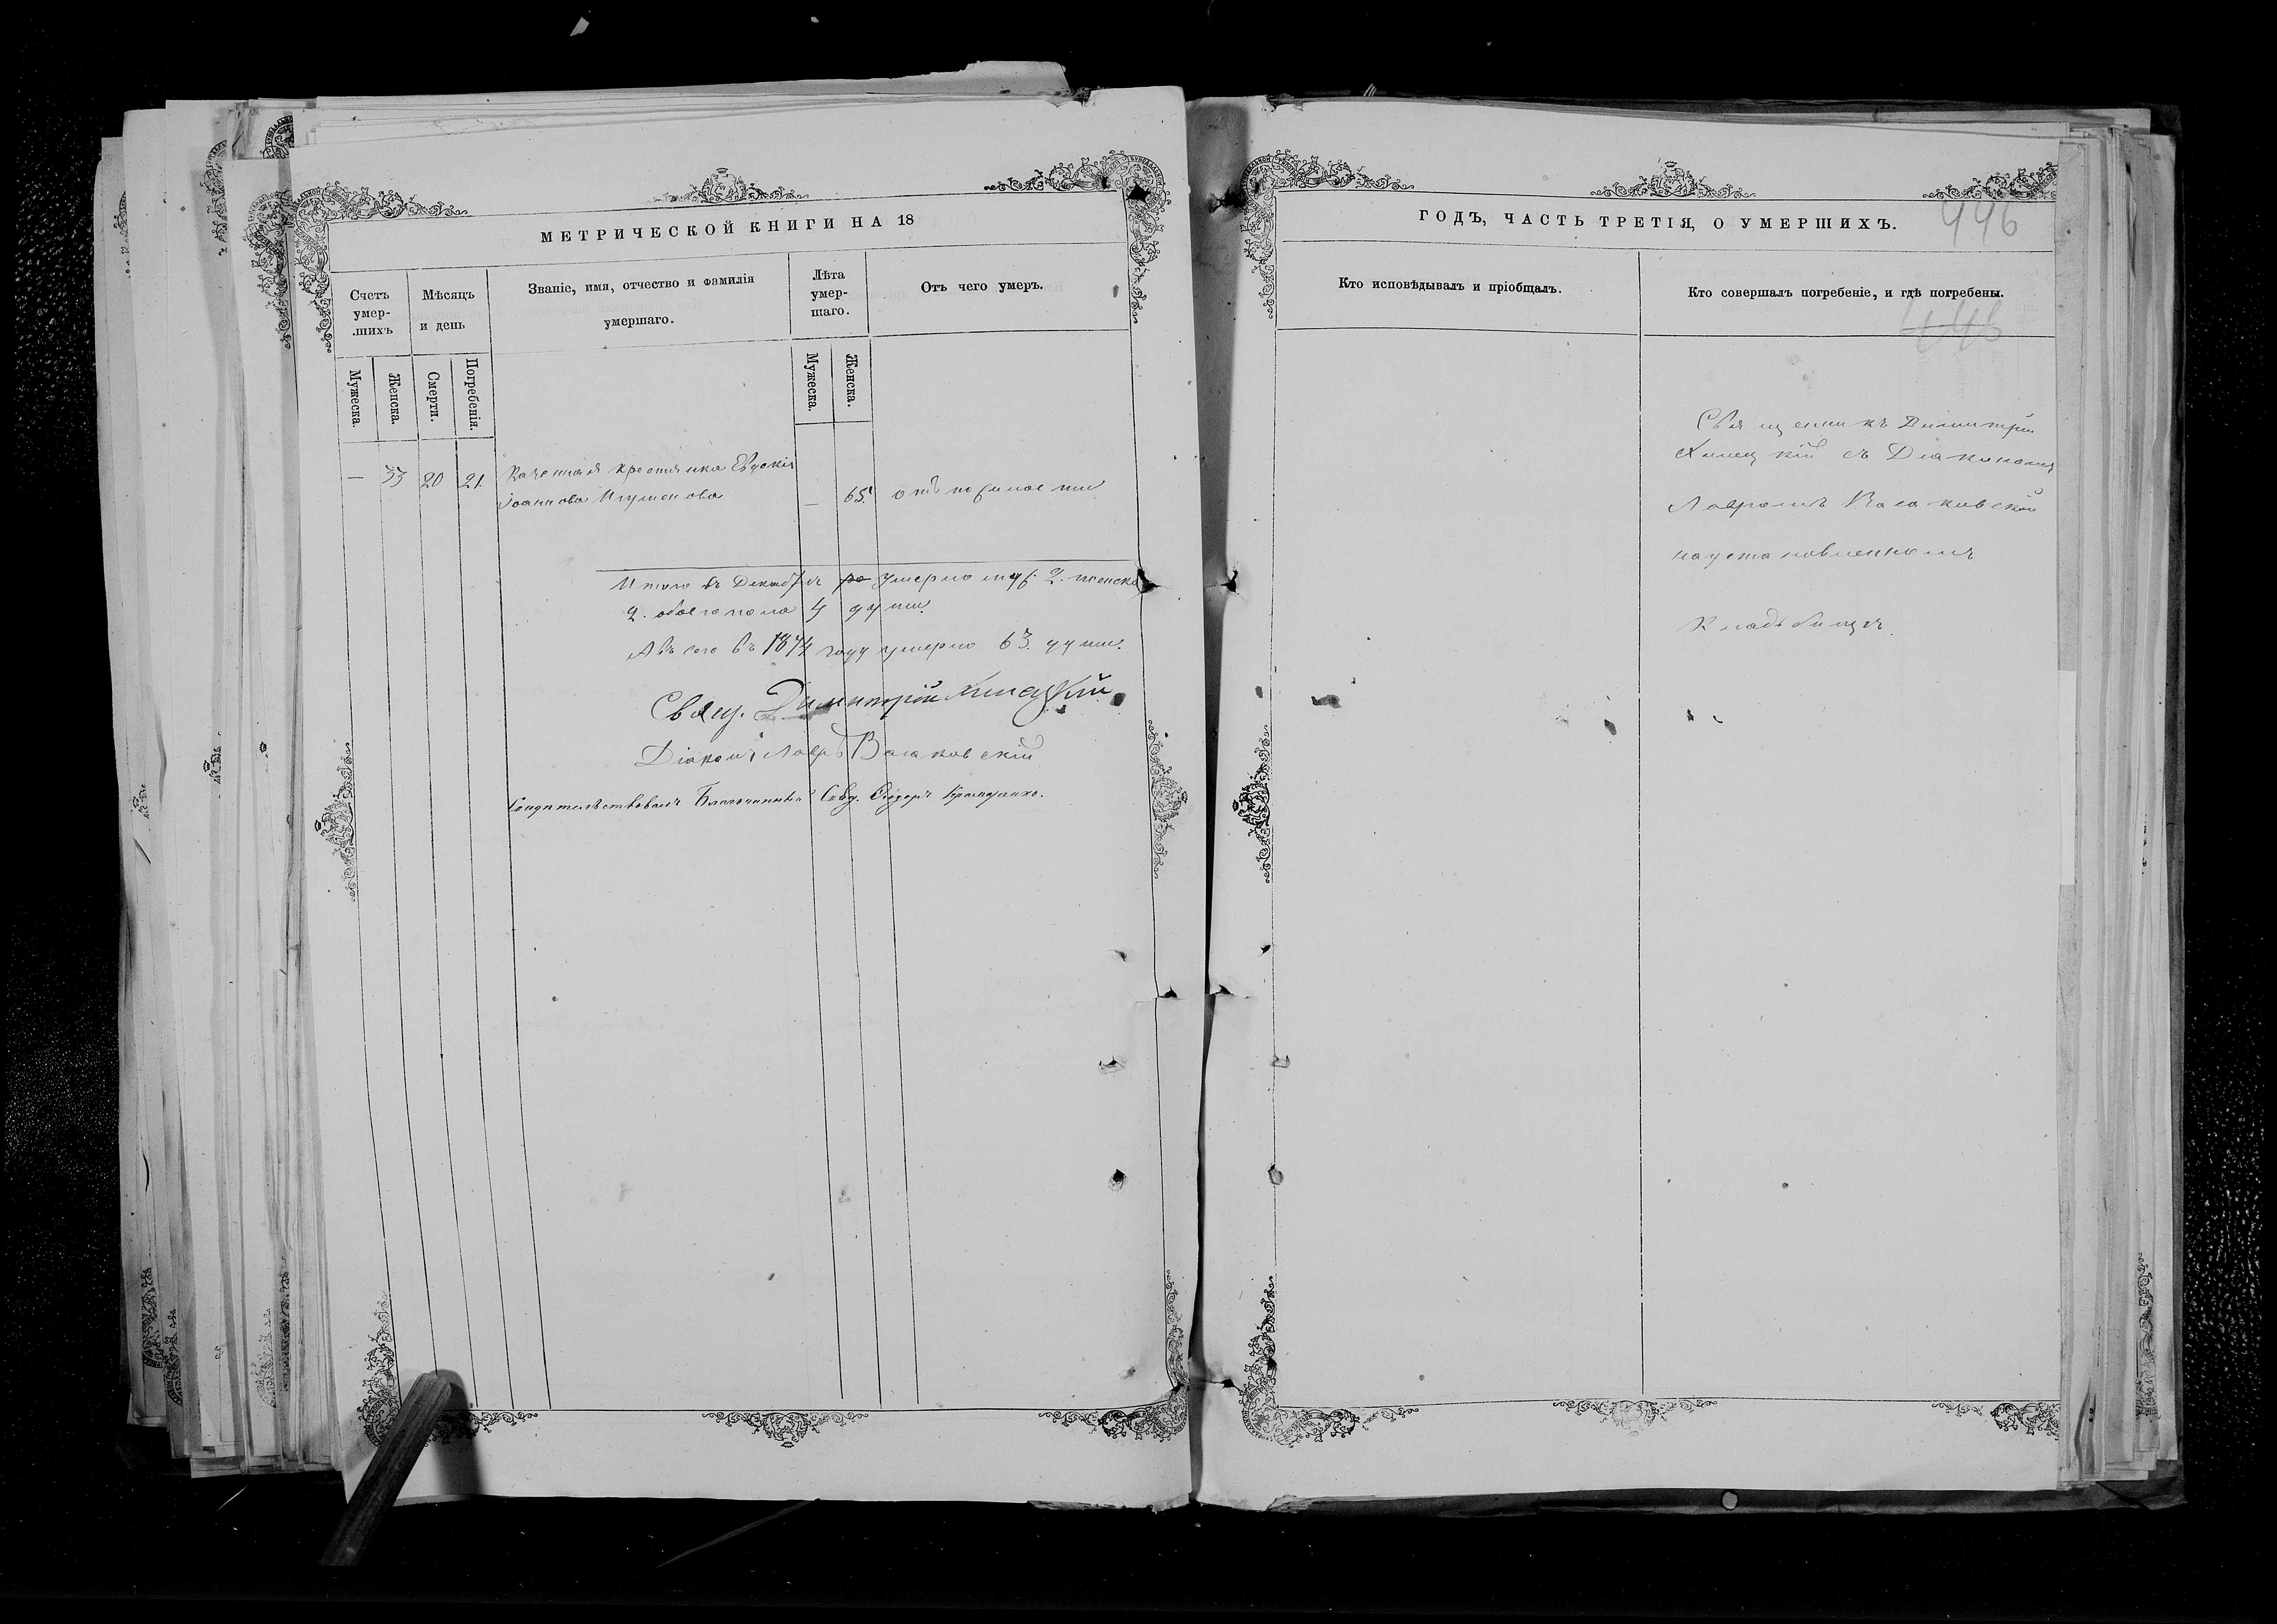 МЕТРИЧЕСКОЙ КНИГИ НА 18
Счетъ умер-шихъ
Мѣсяцъ и день
Званіе, имя, отчество и фамилія умершаго.
Лѣта умер-шаго.
Отъ чего умеръ.
Мужеска.
Женска.
Смерти.
Погребенія.
Мужеска.
Женска.
— 33 20 21.
Казенная крестьянка Евдокія
Іоаннова Игуменова
— 65.
Итого въ Декабрѣ умерло муж. 2. женска
2. обоего пола 4 души.
А всего въ 1874 году умерло 63. души.
Свящ. Димитрій
Діаконъ Лавръ
Свидѣтельствовалъ Благочинный Свящ.
ГОДЪ, ЧАСТЬ ТРЕТІЯ, О УМЕРШИХЪ.
446
Кто исповѣдывалъ и пріобщалъ.
Кто совершалъ погребеніе, и гдѣ погребены.
446
Священникъ Димитрій
съ Діакономъ
Лавромъ
на установленномъ
Кладбищѣ.